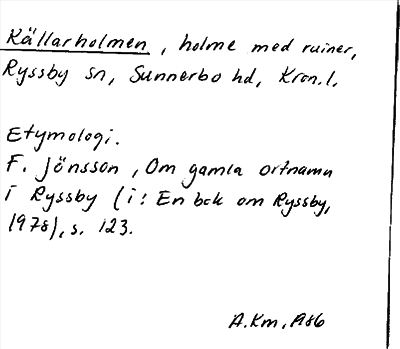 Källarholmen, holme med ruiner,
Ryssby sn, Sunnerbo hd, Kron.l.
Etymologi.
F. Jönsson, Om gamla ortnamn
i Ryssby (i: En bok om Ryssby,
1978), s. 123.
A.Km, 1986